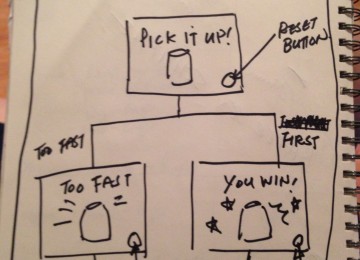 PICK IT UP!
RESET
BUTTON
TOO FAST
FIRST
TOO FAST
YOU WIN!